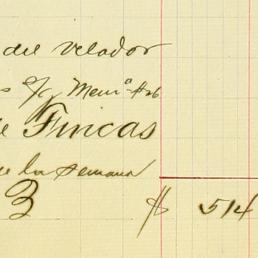 del velador
s/c Mem.ª #26
Fincas
de la semana
3 $ 514